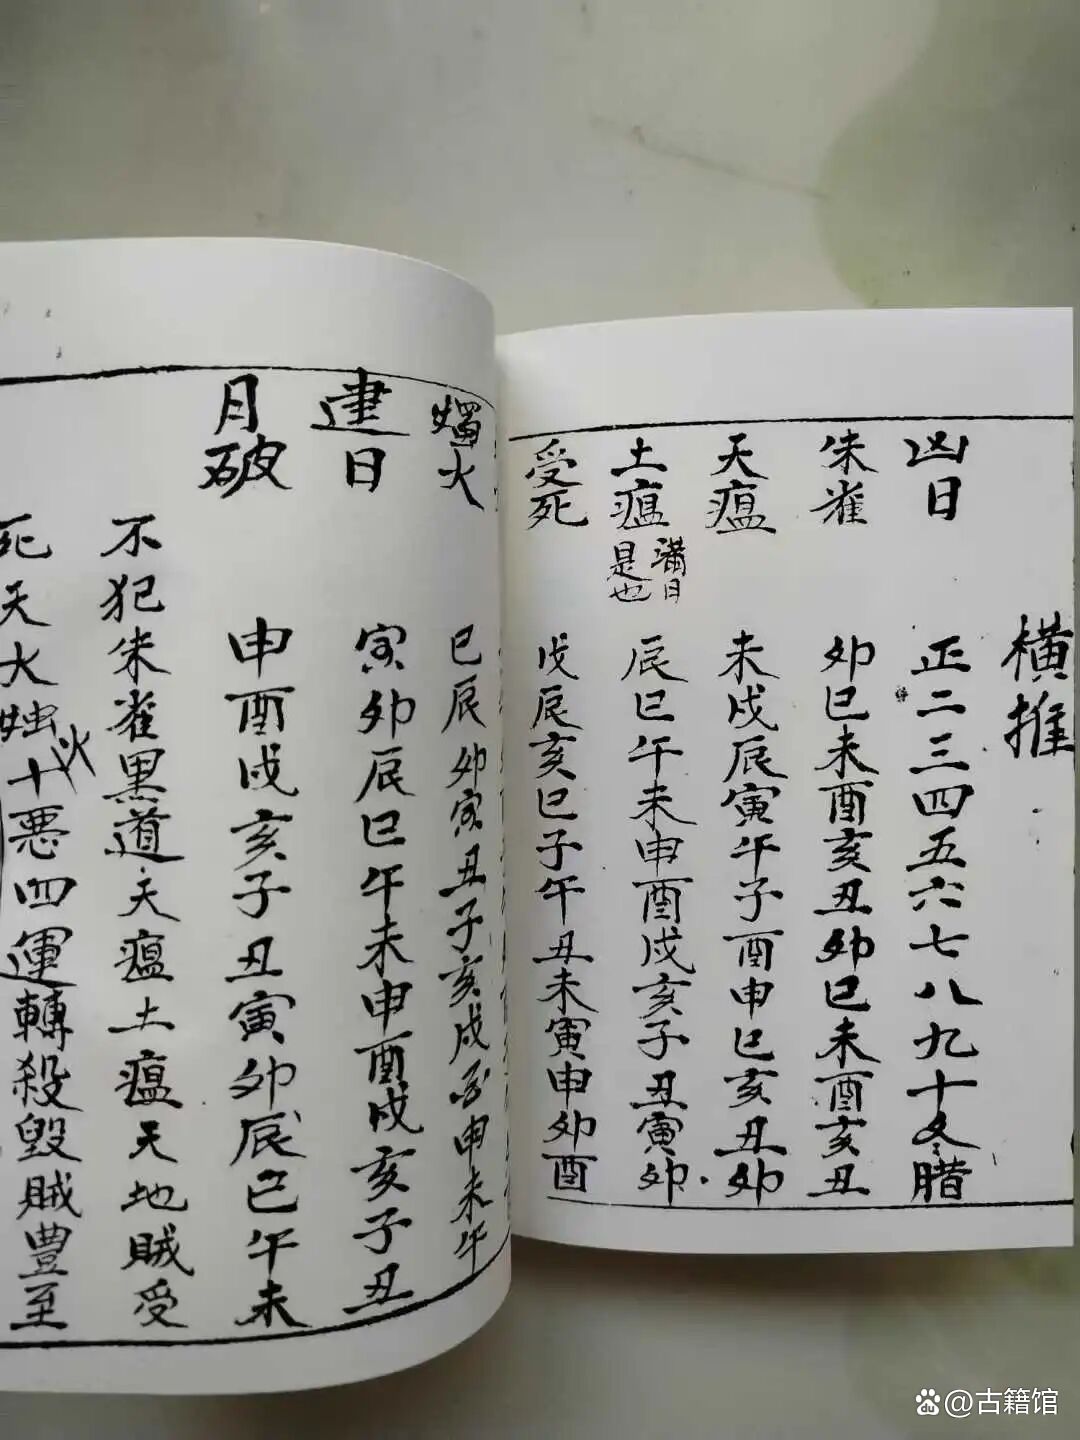 橫推
凶日 正二三四五六七八九十冬腊
朱雀 卯巳未酉亥丑卯巳未酉亥丑
天瘟 未戌辰寅午子酉申巳亥丑卯
土瘟 滿日是也 辰巳午未申酉戌亥子丑寅卯
受死 戌辰亥巳子午丑未寅申卯酉
燭火 巳辰卯寅丑子亥戌酉申未午
建日 寅卯辰巳午未申酉戌亥子丑
月破 申酉戌亥子丑寅卯辰巳午未
不犯朱雀黑道天瘟土瘟天地賊受
死天火蚀火十惡四運轉殺毀賊豊至
@古籍馆